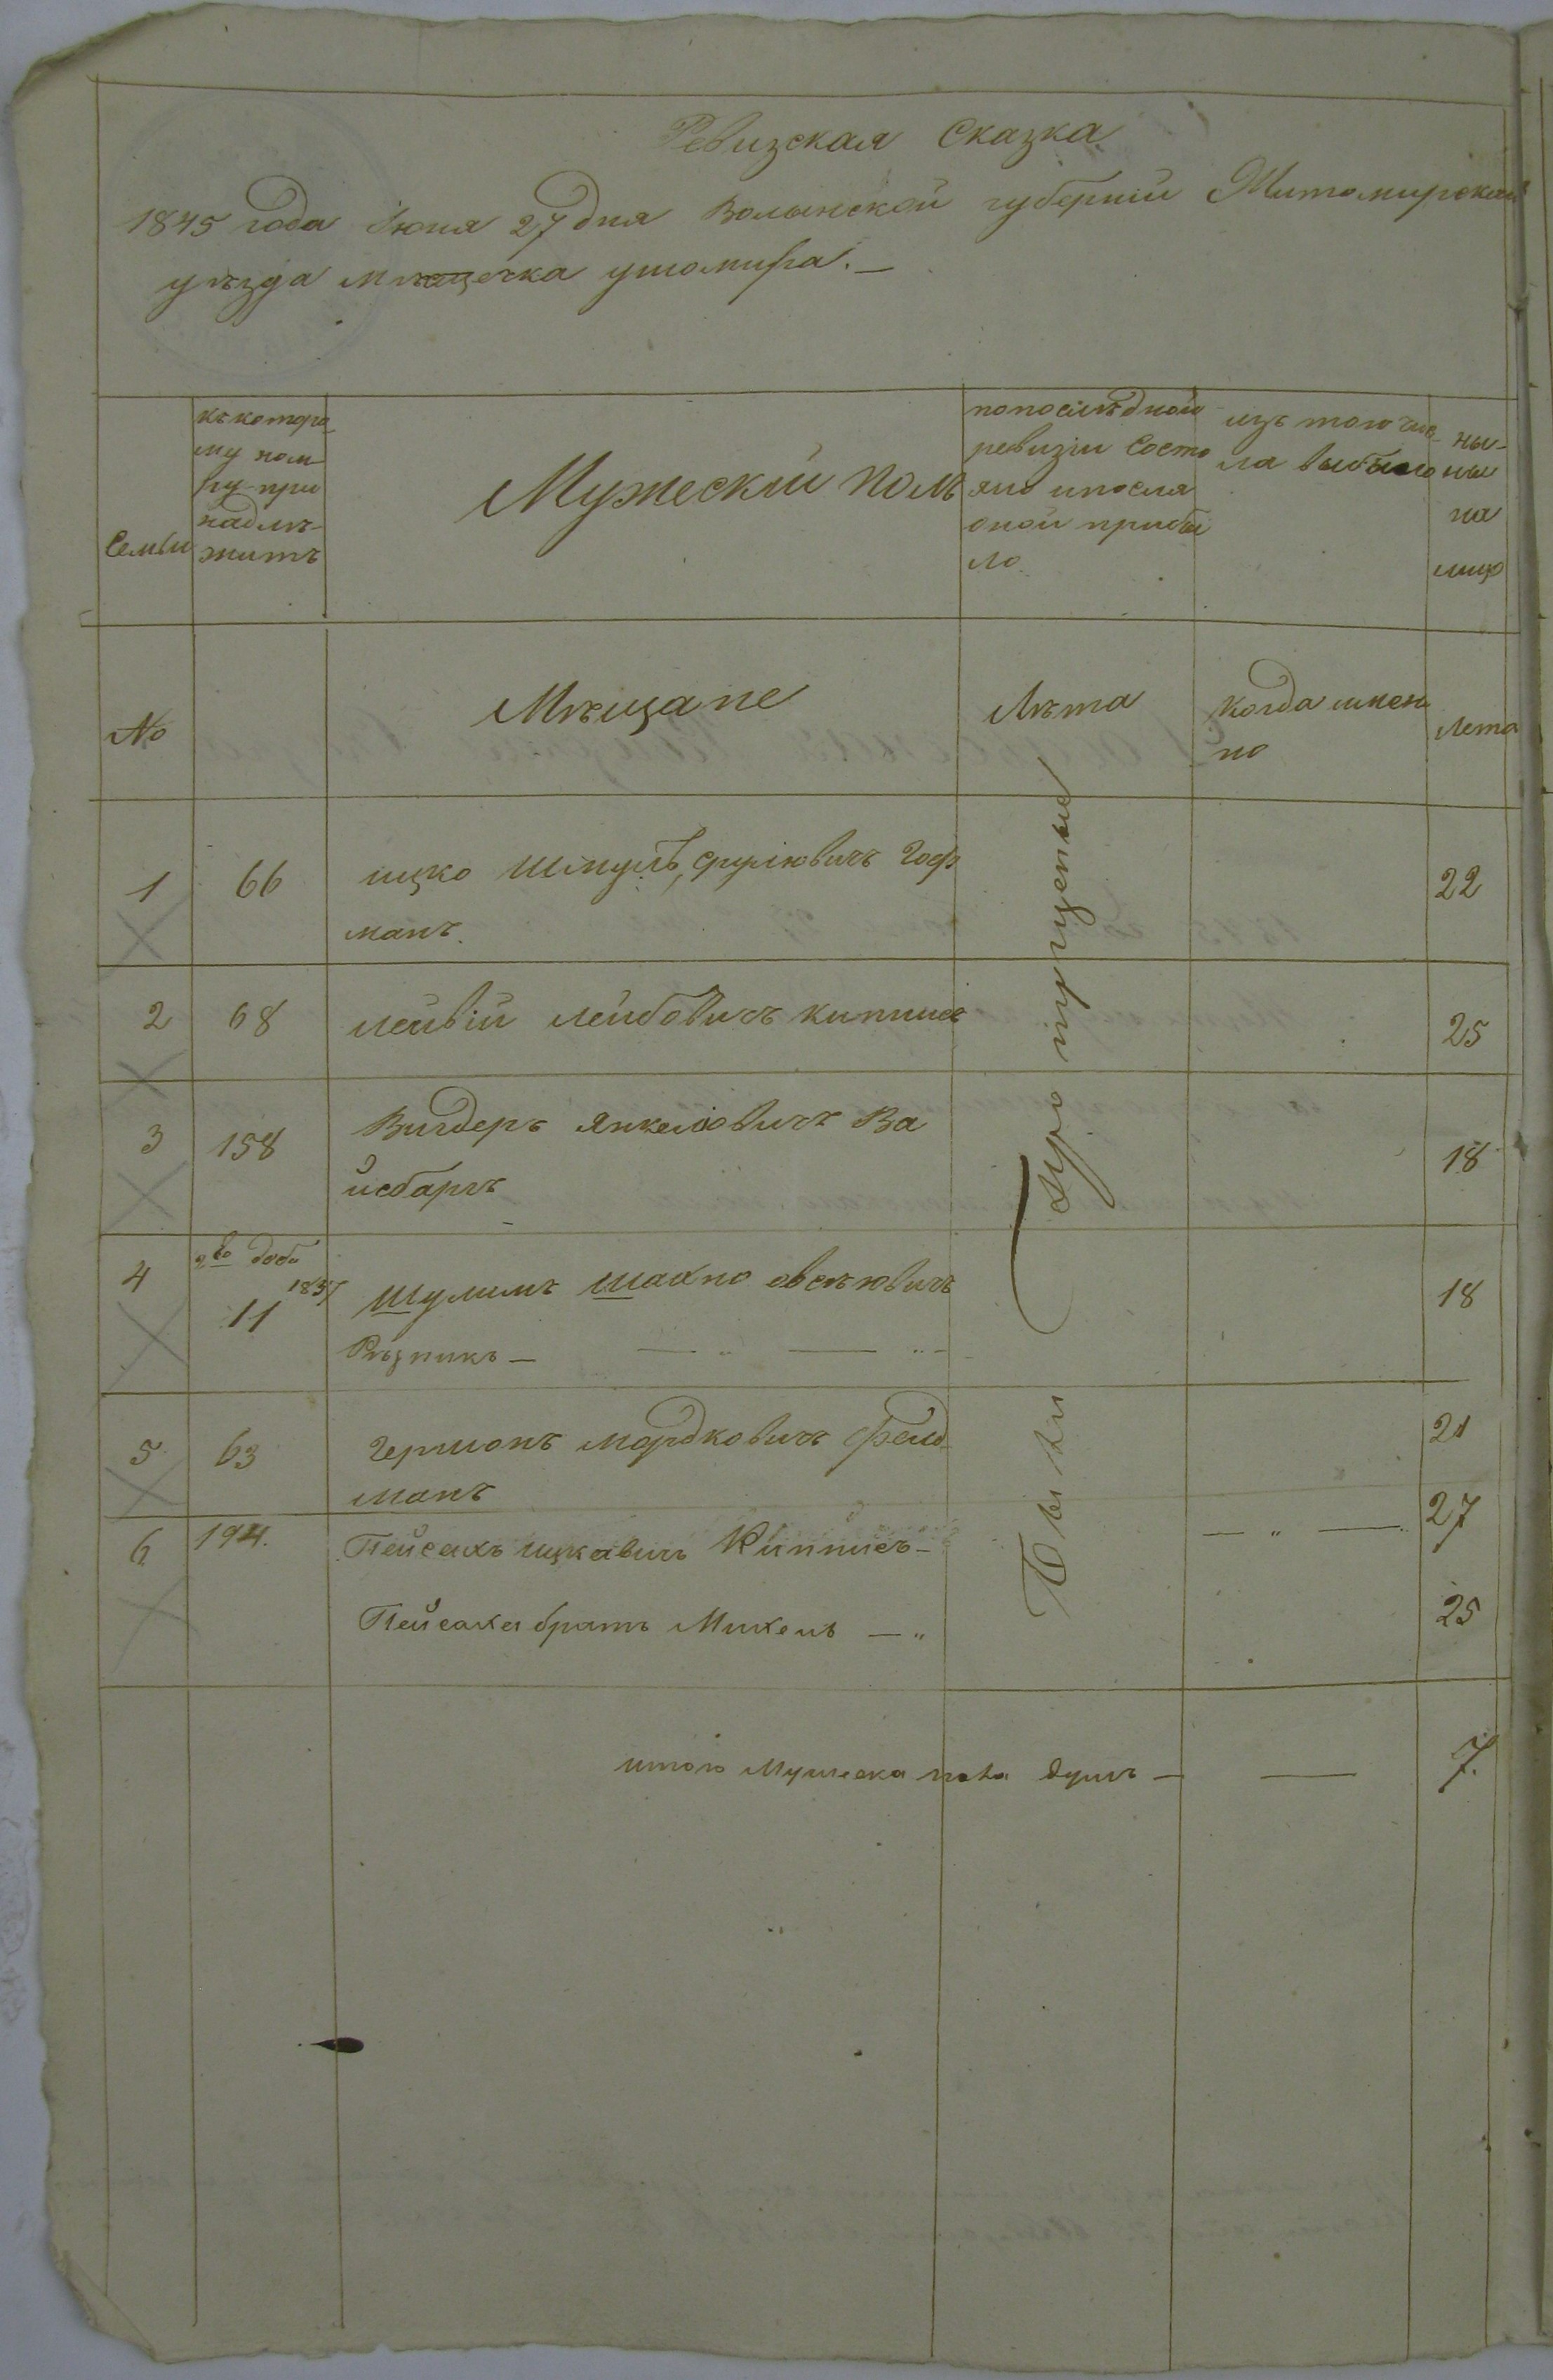 Ревизская Сказка
1845 года Июня 27 дня Волынской губерніи Житомирскаго
уѣзда мѣстечка ушомира.—
Семьи
къ которо
му ном
ру при
надлѣ-
житъ
Мужеский полъ
по послѣдной
ревизіи Состо
яло и посля
оной прибы
ло
изъ того чис-
ла выбыло
ны-
нѣ
на
лицо
№
Мѣщане
Лѣта
когда имен
но
Лета
1
66
ицко Шмуль, Сруліовичъ Гоф
манъ.
22
2
68
лейвій лейбовичъ кипнисъ
25
3
158
Вигдеръ Янкеліовичъ Ва
йсбаргъ
18
4
2во доба
1837
11
Шулимъ Шахно овсѣювичъ
Рѣзникъ —
18
5
63
Гершонъ мордковичъ Фелд
манъ
21
6
194.
Пейсахъ ицкавичъ Кипнисъ —
27
Пейсаха братъ Михель — „
25
Были пропущеные
итого Мужеска пола душъ —
7.